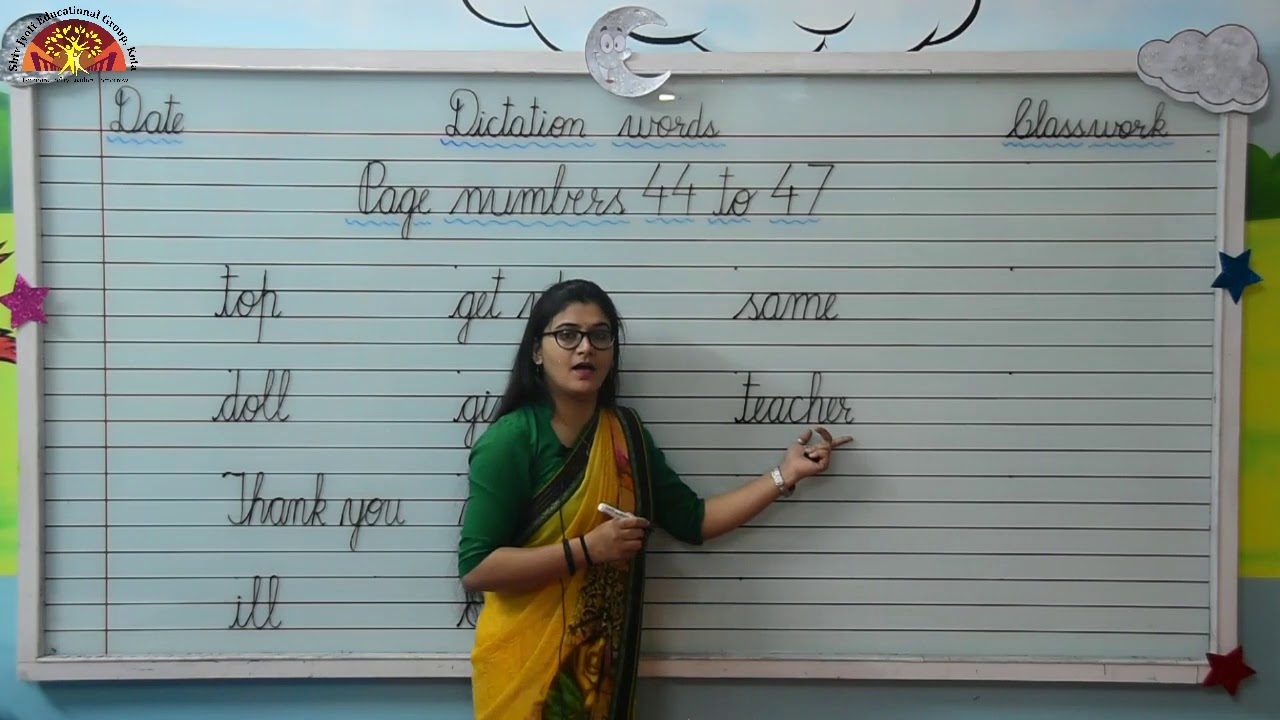 Shiv Jyoti Educational Group, Kota
Date Dictation words Classwork
Page numbers 44 to 47
top get same
doll teacher
Thank you
ill